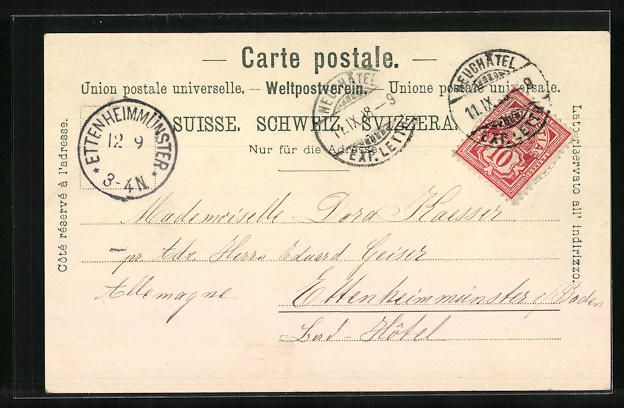 — Carte postale. —
Union postale universelle. — Weltpostverein. — Unione postale universale.
SUISSE. SCHWEIZ. SVIZZERA.
Nur für die Adresse.
Côté réservé à l'adresse.
Lato riservato all' indirizzo.
ETTENHEIMMÜNSTER
12 9
3-4N.
NEUCHÂTEL
11.IX.98-9
EXP. LETTR.
NEUCHÂTEL
11.IX.98-9
EXP. LETTR.
10
Mademoiselle Dora Kaesser
pr. Adr. Herrn Eduard Geiser
Allemagne Ettenheimmünster i/Baden
Bad-Hôtel